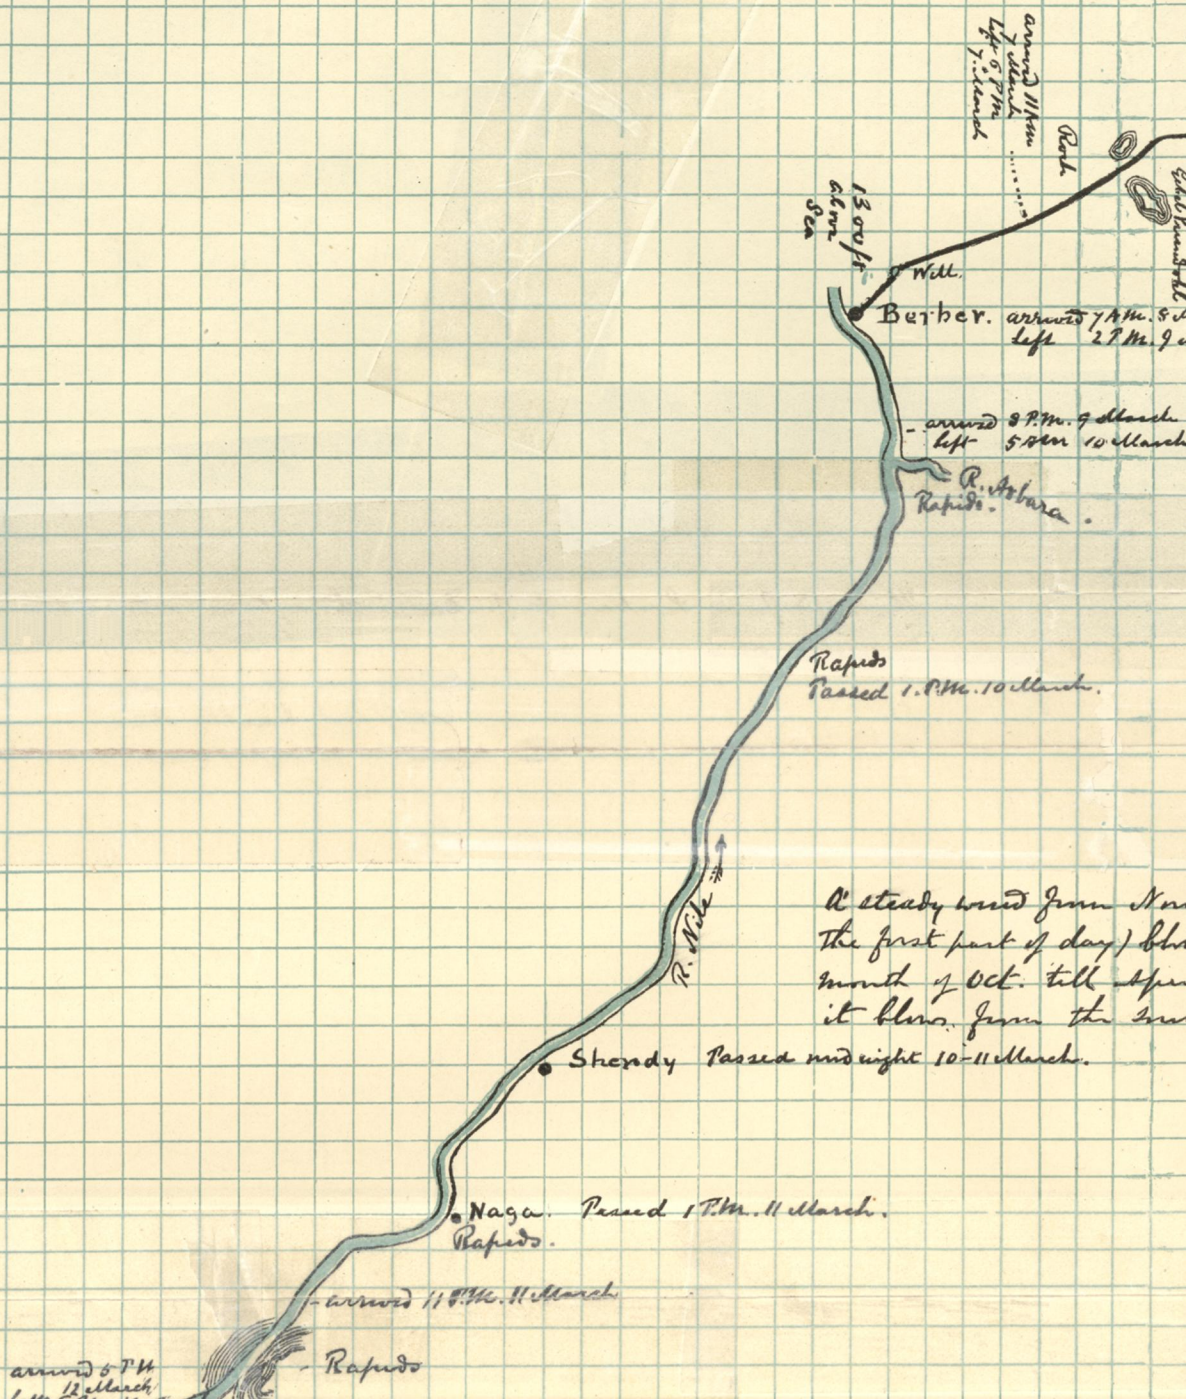 arrived 11 AM
7 March
left 6 PM
7. March
Rock
1300 ft
above
Sea
Well.
Berber. arrived 7 A.M. 8
left 2 P.M. 9
arrived 8 P.M. 9 March
left 5 AM 10 March
R. Atbara.
Rapids.
Rapids
Passed 1. P.M. 10 March.
R. Nile
A steady wind from
the first part of day)
month of Oct. till
it blows from the
Shendy Passed midnight 10-11 March.
Naga. Passed 1 P.M. 11 March.
Rapids.
arrived 11 P.M. 11 March
Rapids
arrived 5 P M
12 March